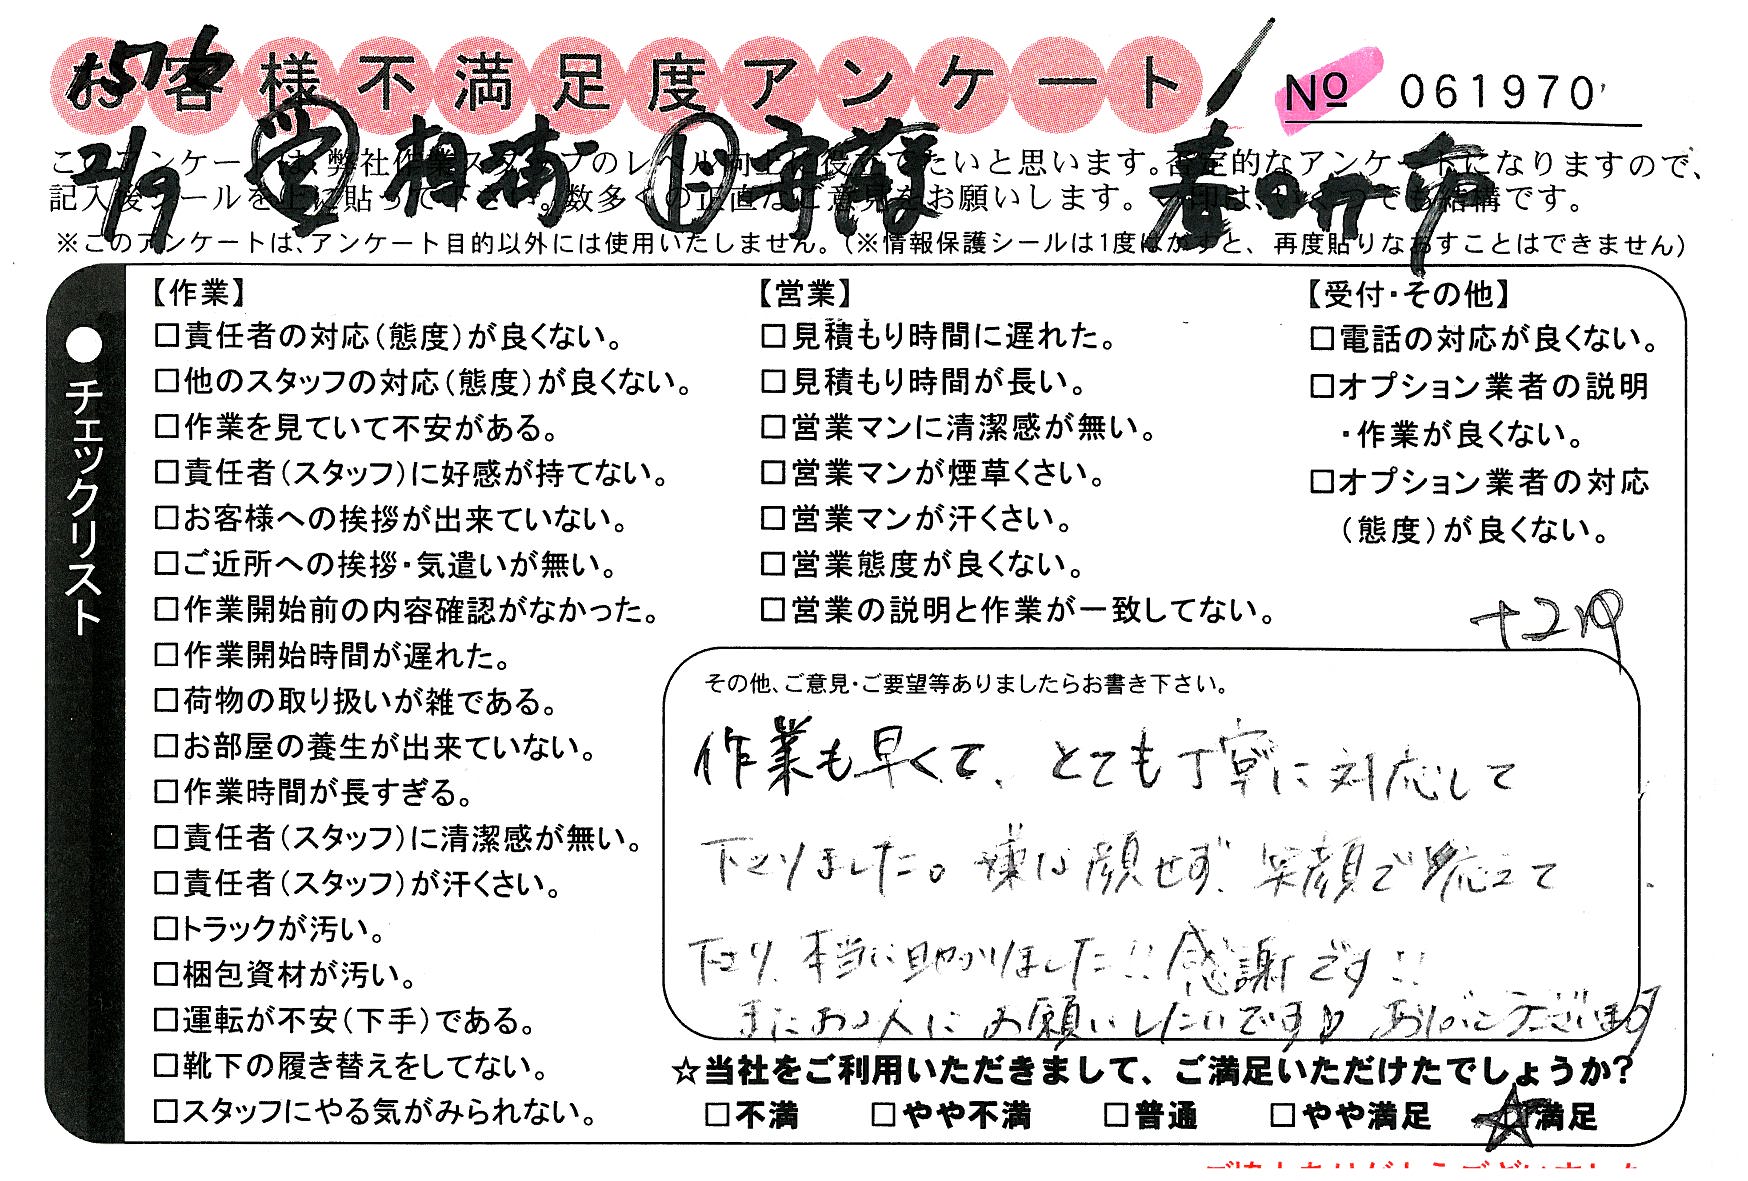 お客様不満足度アンケート
No 061970
2/9 営 相蒲 上 守護 春日井市
このアンケートは、弊社作業スタッフのレベル向上に役立てたいと思います。否定的なアンケートになりますので、
記入後シールを上に貼って下さい。数多くの正直なご意見をお願いします。レ印は、いくつでも結構です。
※このアンケートは、アンケート目的以外には使用いたしません。(※情報保護シールは1度はがすと、再度貼りなおすことはできません)
●チェックリスト
【作業】
□責任者の対応(態度)が良くない。
□他のスタッフの対応(態度)が良くない。
□作業を見ていて不安がある。
□責任者(スタッフ)に好感が持てない。
□お客様への挨拶が出来ていない。
□ご近所への挨拶・気遣いが無い。
□作業開始前の内容確認がなかった。
□作業開始時間が遅れた。
□荷物の取り扱いが雑である。
□お部屋の養生が出来ていない。
□作業時間が長すぎる。
□責任者(スタッフ)に清潔感が無い。
□責任者(スタッフ)が汗くさい。
□トラックが汚い。
□梱包資材が汚い。
□運転が不安(下手)である。
□靴下の履き替えをしてない。
□スタッフにやる気がみられない。
【営業】
□見積もり時間に遅れた。
□見積もり時間が長い。
□営業マンに清潔感が無い。
□営業マンが煙草くさい。
□営業マンが汗くさい。
□営業態度が良くない。
□営業の説明と作業が一致してない。
【受付・その他】
□電話の対応が良くない。
□オプション業者の説明
・作業が良くない。
□オプション業者の対応
(態度)が良くない。
その他、ご意見・ご要望等ありましたらお書き下さい。
作業も早くて、とても丁寧に対応して
下さりました。嫌な顔せず、笑顔で応えて
下さり、本当に助かりました!!感謝です!!
またお2人にお願いしたいです♪ ありがとうございます
☆当社をご利用いただきまして、ご満足いただけたでしょうか?
□不満 □やや不満 □普通 □やや満足 □満足
ご協力ありがとうございました